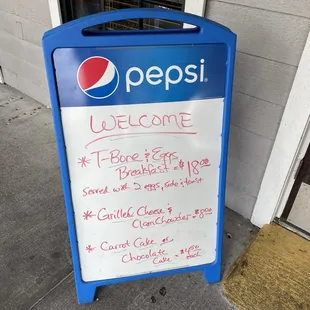 pepsi
WELCOME
* T-Bone & Eggs
Breakfast = $18.00
Served with 2 eggs, side & toast
* Grilled Cheese &
Clam Chowder = $
* Carrot Cake or
Chocolate
Cake = $
each